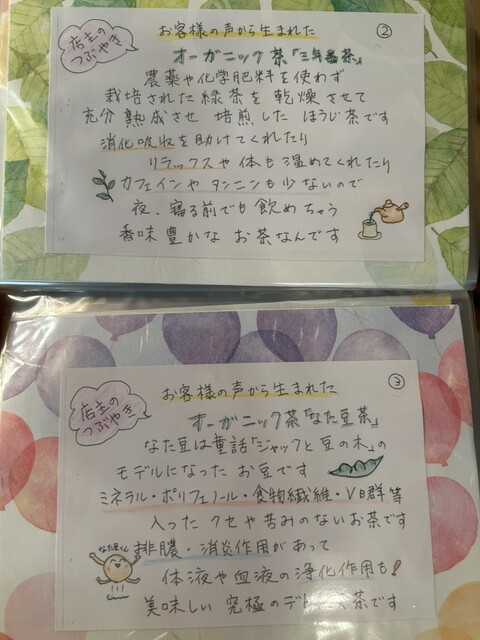 店主の
つぶやき
お客様の声から生まれた
②
オーガニック茶「三年番茶」
農薬や化学肥料を使わず
栽培された緑茶を乾燥させて
充分熟成させ 焙煎した ほうじ茶です
消化吸収を助けてくれたり
リラックスや体も温めてくれたり
カフェインや タンニンも少ないので
夜、寝る前でも飲めちゃう
香味豊かな お茶なんです
店主の
つぶやき
お客様の声から生まれた
③
オーガニック茶「なた豆茶」
なた豆は童話「ジャックと豆の木」の
モデルになった お豆です
ミネラル・ポリフェノール・食物繊維・VB群等
入った クセや苦みのないお茶です
なた豆くん
排膿・消炎作用があって
体液や血液の浄化作用も!
美味しい 究極のデトックス茶です